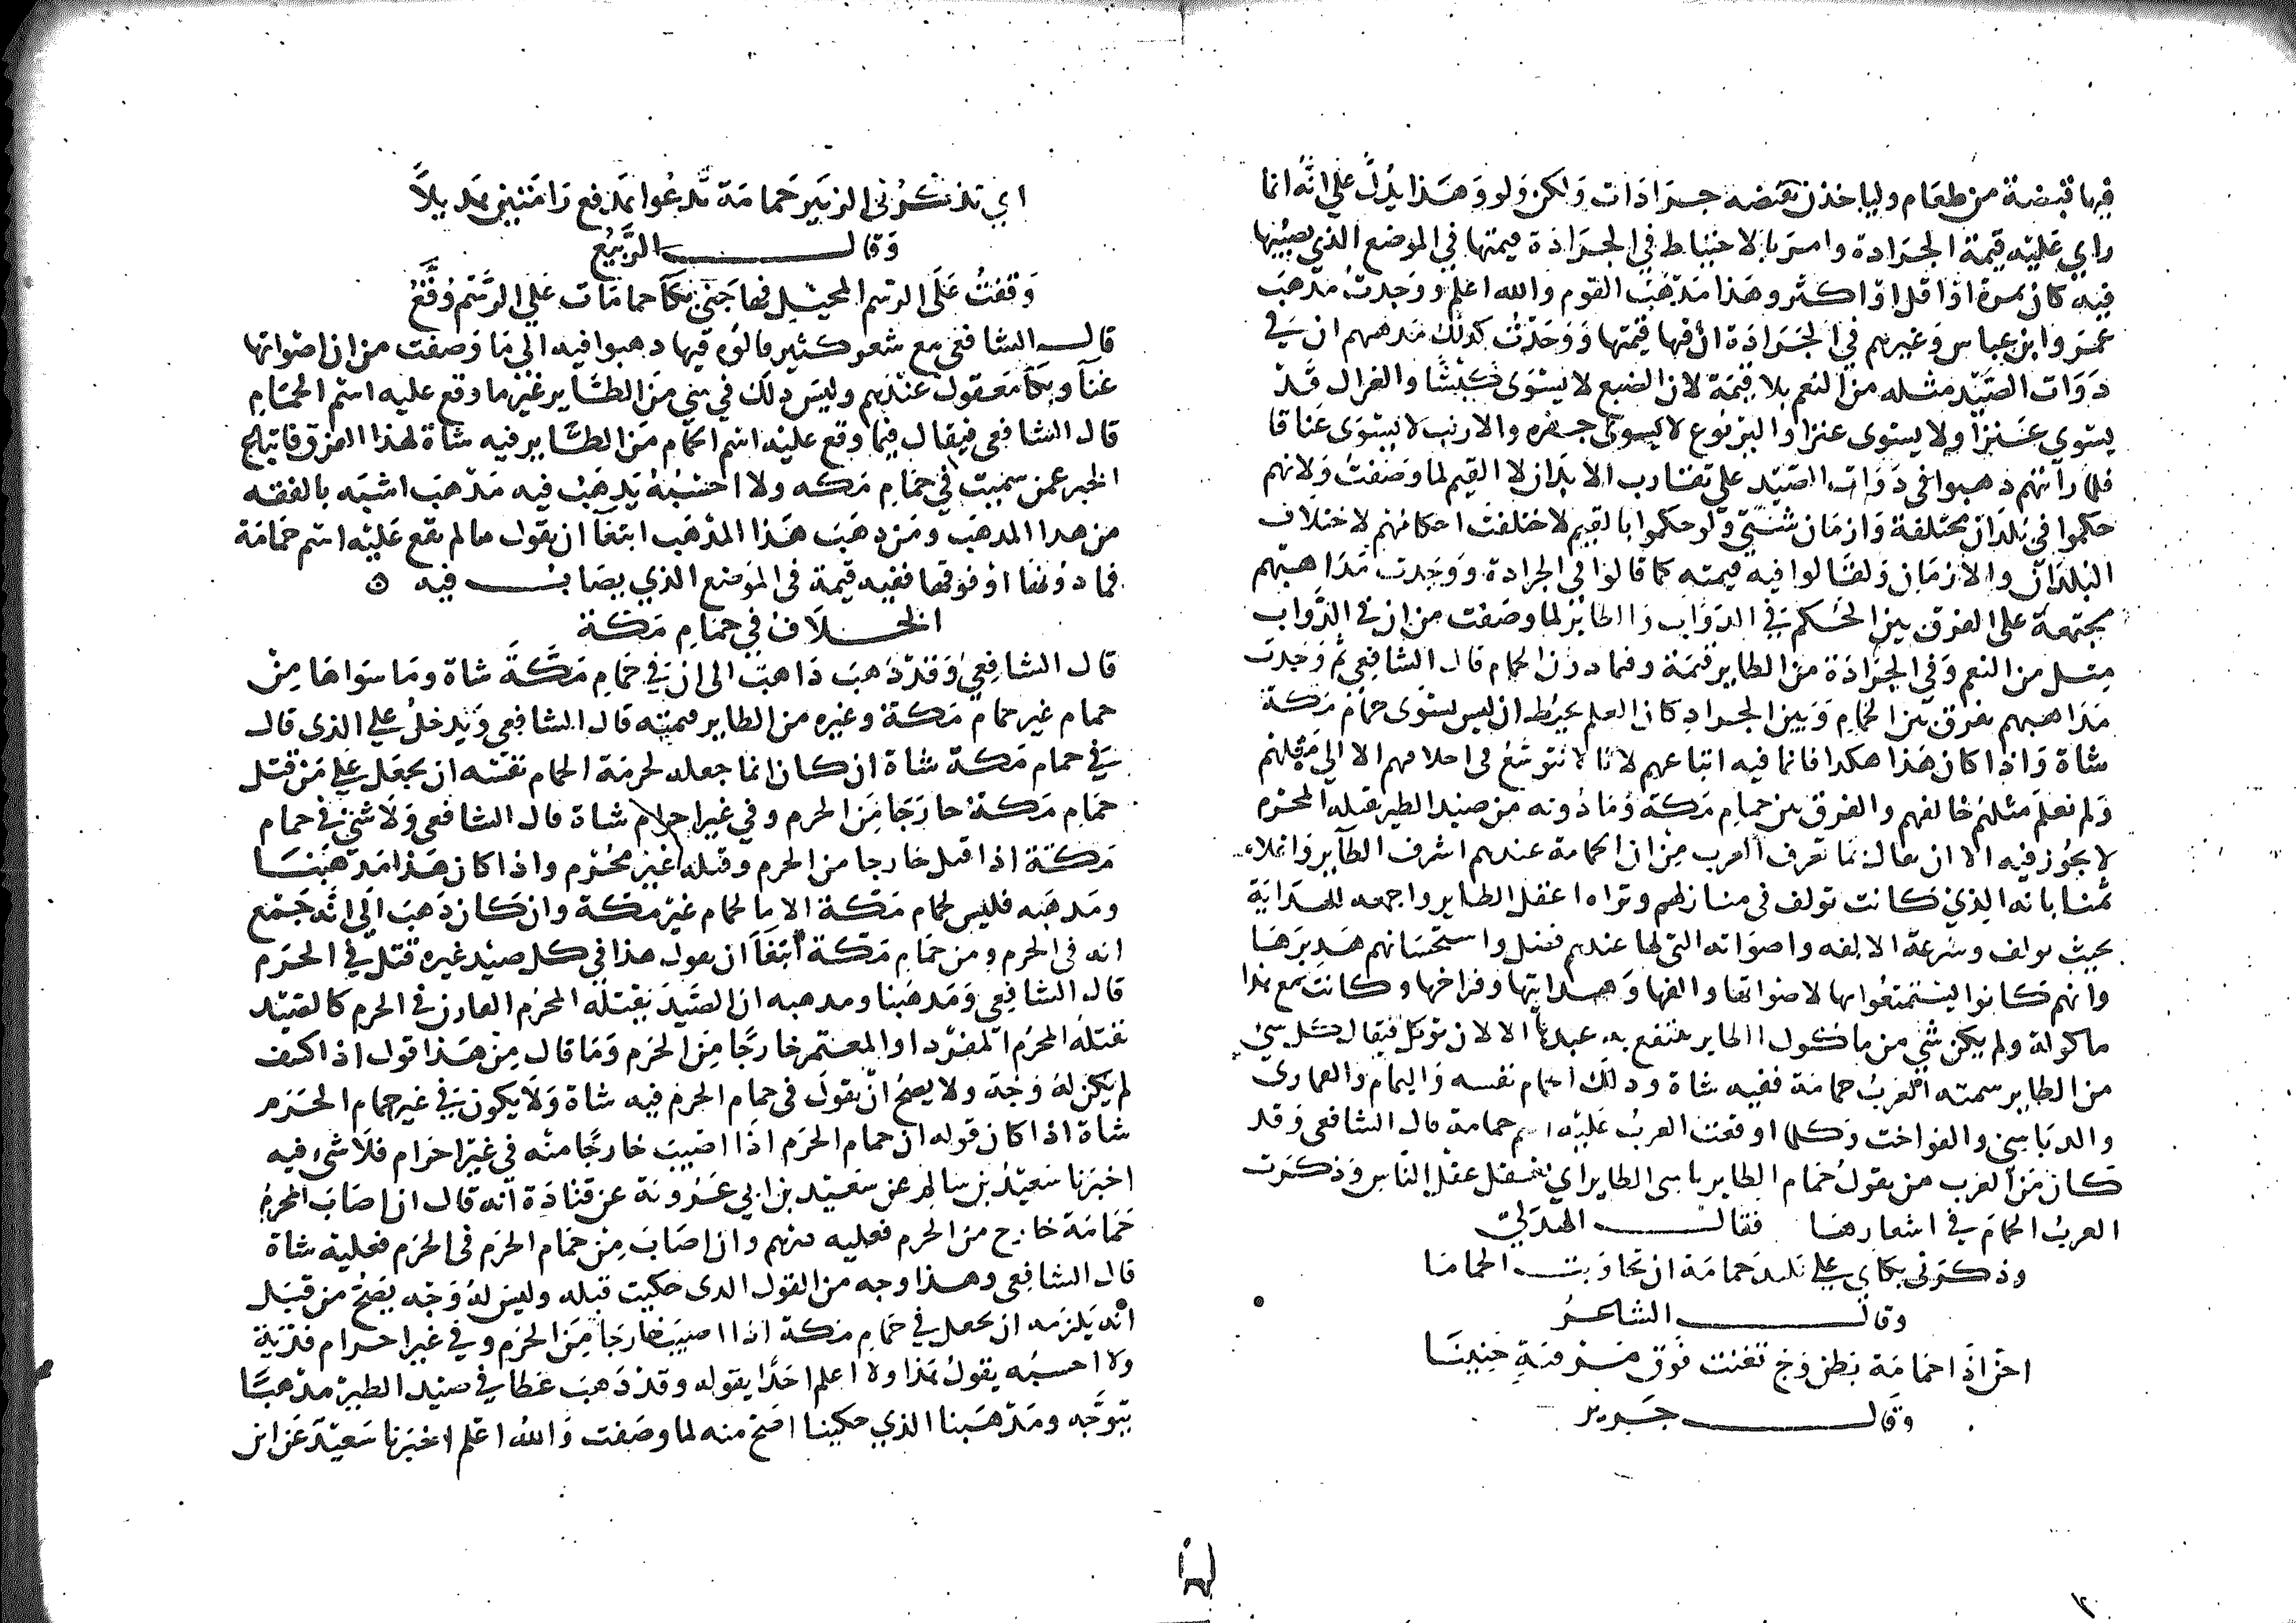 فيها قبضة من طعام ولياخذن بقبضه جرادات ولكن ولو وهذا يدل على انه انما
راي عليه قيمة الجرادة وامر بالاحتياط في الجرادة قيمتها في الموضع الذي يصيبها
فيه كان تمرة او اقل او اكثر وهذا مذهب القوم والله اعلم ووجدت مذهب
عمر وابن عباس وغيرهم في الجرادة ان فيها قيمتها ووجدت كذلك مذهبهم ان في
دوات الصيد مثله من النعم بلا قيمة لان الضبع لا يسوى كبشا والغزال قد
يسوى عنزا ولا يسوى عنزا واليربوع لا يسوى جفره والارنب لا يسوى عناقا
فلما رأتهم ذهبوا في دوات الصيد على تقارب الابدان لا القيم لما وصفت ولانهم
حكموا في بلدان مختلفة وازمان شتى ولو حكموا بالقيم لاختلفت احكامهم لاختلاف
البلدان والازمان ولقالوا فيه قيمته كما قالوا في الجرادة ووجدت مذاهبهم
مجتمعة على الفرق بين الحكم في الدواب والطاير لما وصفت من ان في الدواب
مثل من النعم وفي الجرادة من الطاير قيمة وفيما دون الحمام قال الشافعي ثم وجدت
مذاهبهم تفرق بين الحمام وبين الجراد كان العلم يحيط ان ليس يسوى حمام مكة
شاة واذا كان هذا هكذا فانما فيه اتباعهم لانا لا نتوسع في خلافهم الا الى مثلهم
ولم نعلم مثلهم خالفهم والفرق بين حمام مكة وما دونه من صيد الطير يقتله المحرم
لا يجوز فيه الا ان يقال بما تعرف العرب من ان الحمامة عندهم اشرف الطاير واغلاه
ثمنا بانه الذي كانت تولف في منازلهم وتراه اعقل الطاير واجمعه للهداية
بحيث يولف وسرعة الالفه واصواته التي لها عندهم فضل واستحسانهم هديرها
وانهم كانوا ليستمتعوا بها لاصواتها والفها وهدايتها وفراخها وكانت مع هذا
ماكولة ولم يكن شي من ماكول الطاير ينتفع به عندها الا لان توكل فيقال كل شي
من الطاير سمته العرب حمامة ففيه شاة وذلك الحمام نفسه واليمام والقماري
والدباسي والفواخت وكلما اوقعت العرب عليه اسم حمامة قال الشافعي وقد
كان من العرب من يقول حمام الطاير ناس الطاير اي يعقل عقل الناس وذكرت
العرب الحمام في اشعارها فقال الهذلي
وذكرني بكاي على تليد حمامة ان تجاوبت الحماما
وقال الشاعر
احن اذا حمامة بطن وج تغنت فوق مرقبة حنينا
وقال جرير
اي تذكرني الزبير حمامة تدعوا بمدفع رامتين هديلا
وقال الربيع
وقفت على الرسم المحيل فهاجني بكا حمامات على الرسم وقع
قال الشافعي مع شعر كثير قالوه فيها ذهبوا فيه الى ما وصفت من ان اصواتها
غنا وبكا معقول عندهم وليس ذلك في شي من الطاير غير ما وقع عليه اسم الحمام
قال الشافعي فيقال فيما وقع عليه اسم الحمام من الطاير فيه شاة لهذا الفرق فاتباع
الخبر عمن سميت في حمام مكه ولا احسبه يذهب فيه مذهب اشبه بالفقه
من هذا المذهب ومن ذهب هذا المذهب ابتغا ان يقول ما لم يقع عليه اسم حمامة
فما دونها او فوقها ففيه قيمة في الموضع الذي يصاب فيه
الخلاف في حمام مكة
قال الشافعي وقد ذهب ذاهب الى ان في حمام مكة شاة وما سواها من
حمام غير حمام مكة وغيره من الطاير قيمته قال الشافعي ويدخل على الذي قال
في حمام مكة شاة ان كان انما جعله لحرمة الحمام نفسه ان يجعل على من قتل
حمام مكة خارجا من الحرم وفي غير احرام شاة قال الشافعي ولا شي في حمام
مكة اذا قتل خارجا من الحرم وقتله غير محرم واذا كان هذا مذهبنا
ومذهبه فليس لحمام مكة الا ما لحمام غير مكة وان كان ذهب الى انه جمع
انه في الحرم ومن حمام مكة ابتغا ان يقول هذا في كل صيد غيره قتل في الحرم
قال الشافعي ومذهبنا ومذهبه ان الصيد يقتله المحرم القارن في الحرم كالصيد
يقتله المحرم المفرد او المعتمر خارجا من الحرم وما قال من هذا قول اذا كشف
لم يكن له وجه ولا يصح ان يقول في حمام الحرم فيه شاة ولا يكون في غير حمام الحرم
شاة اذا كان قوله ان حمام الحرم اذا اصيب خارجا منه في غير احرام فلا شيء فيه
اخبرنا سعيد بن سالم عن سعيد بن ابي عروبة عن قتادة انه قال ان اصاب المحرم
حمامة خارج من الحرم فعليه درهم وان اصاب من حمام الحرم في الحرم فعليه شاة
قال الشافعي وهذا وجه من القول الذي حكيت قبله وليس له وجه يصح من قبل
انه يلزمه ان يجعل في حمام مكة اذا اصيب خارجا من الحرم وفي غير احرام فدية
ولا احسبه يقول بهذا ولا اعلم احدا يقوله وقد ذهب عطا في صيد الطير مذهبا
يتوجه ومذهبنا الذي حكينا اصح منه لما وصفت والله اعلم اخبرنا سعيد عن ابن